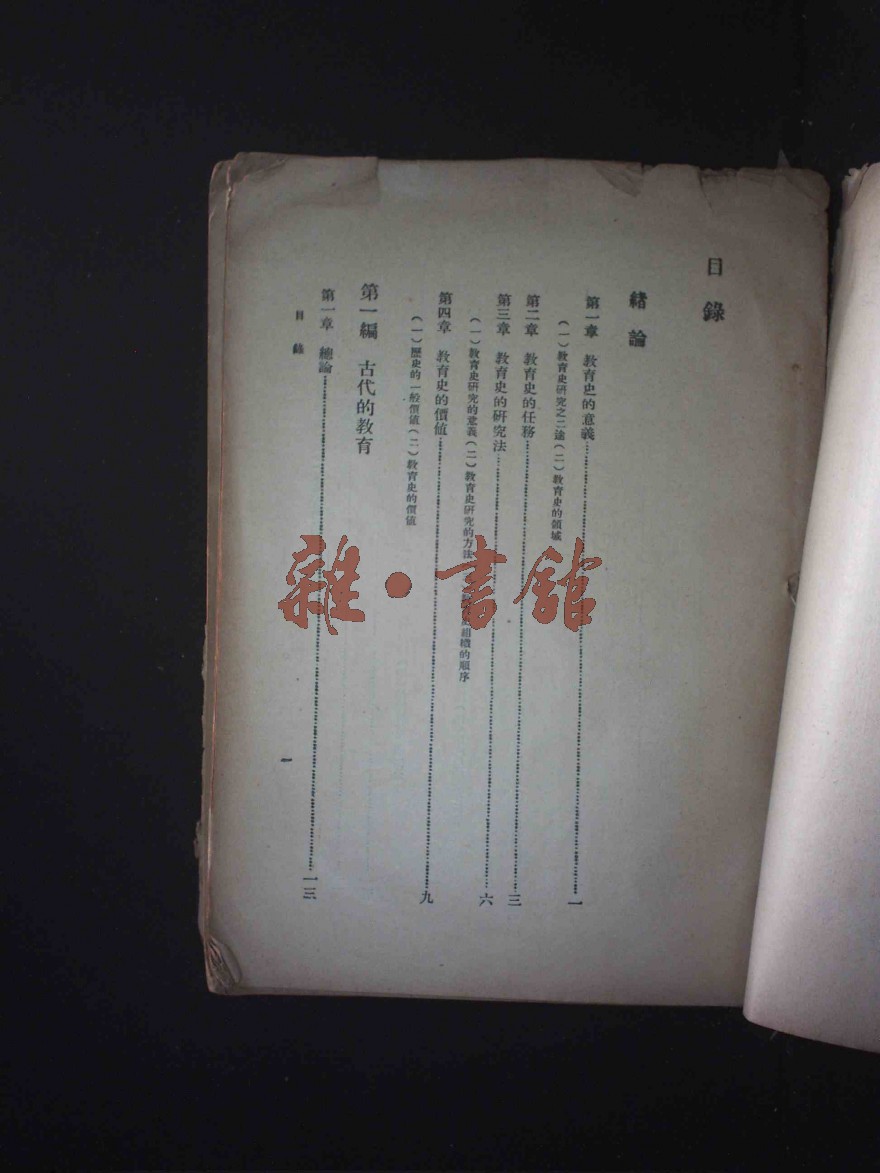 目錄
緒論
第一章　教育史的意義……一
（一）教育史研究之二途（二）教育史的領域
第二章　教育史的任務……三
第三章　教育史的研究法……六
（一）教育史研究的意義（二）教育史研究的方法 組織的順序
第四章　教育史的價值……九
（一）歷史的一般價值（二）教育史的價值
第一編　古代的教育
第一章　總論……一三
目錄
一
雜·書館